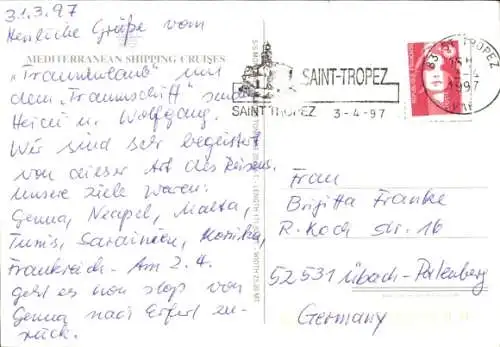 31.3.97
Herzliche Grüße vom
MEDITERRANEAN SHIPPING CRUISES
"Traumurlaub" mit
dem "Traumschiff" senden
Heidi u. Wolfgang.
Wir sind sehr begeistert
von dieser Art des Reisens.
Unsere Ziele waren:
Genua, Neapel, Malta,
Tunis, Sardinien, Korsika,
Frankreich. Am 2.4.
geht es non stop von
Genua nach Erfurt zu-
rück.
SAINT-TROPEZ
SAINT TROPEZ 3-4-97
83 ST TROPEZ
1997
VAR
Frau
Brigitta Franke
R. Koch Str. 16
52531 Übach-Palenberg
Germany